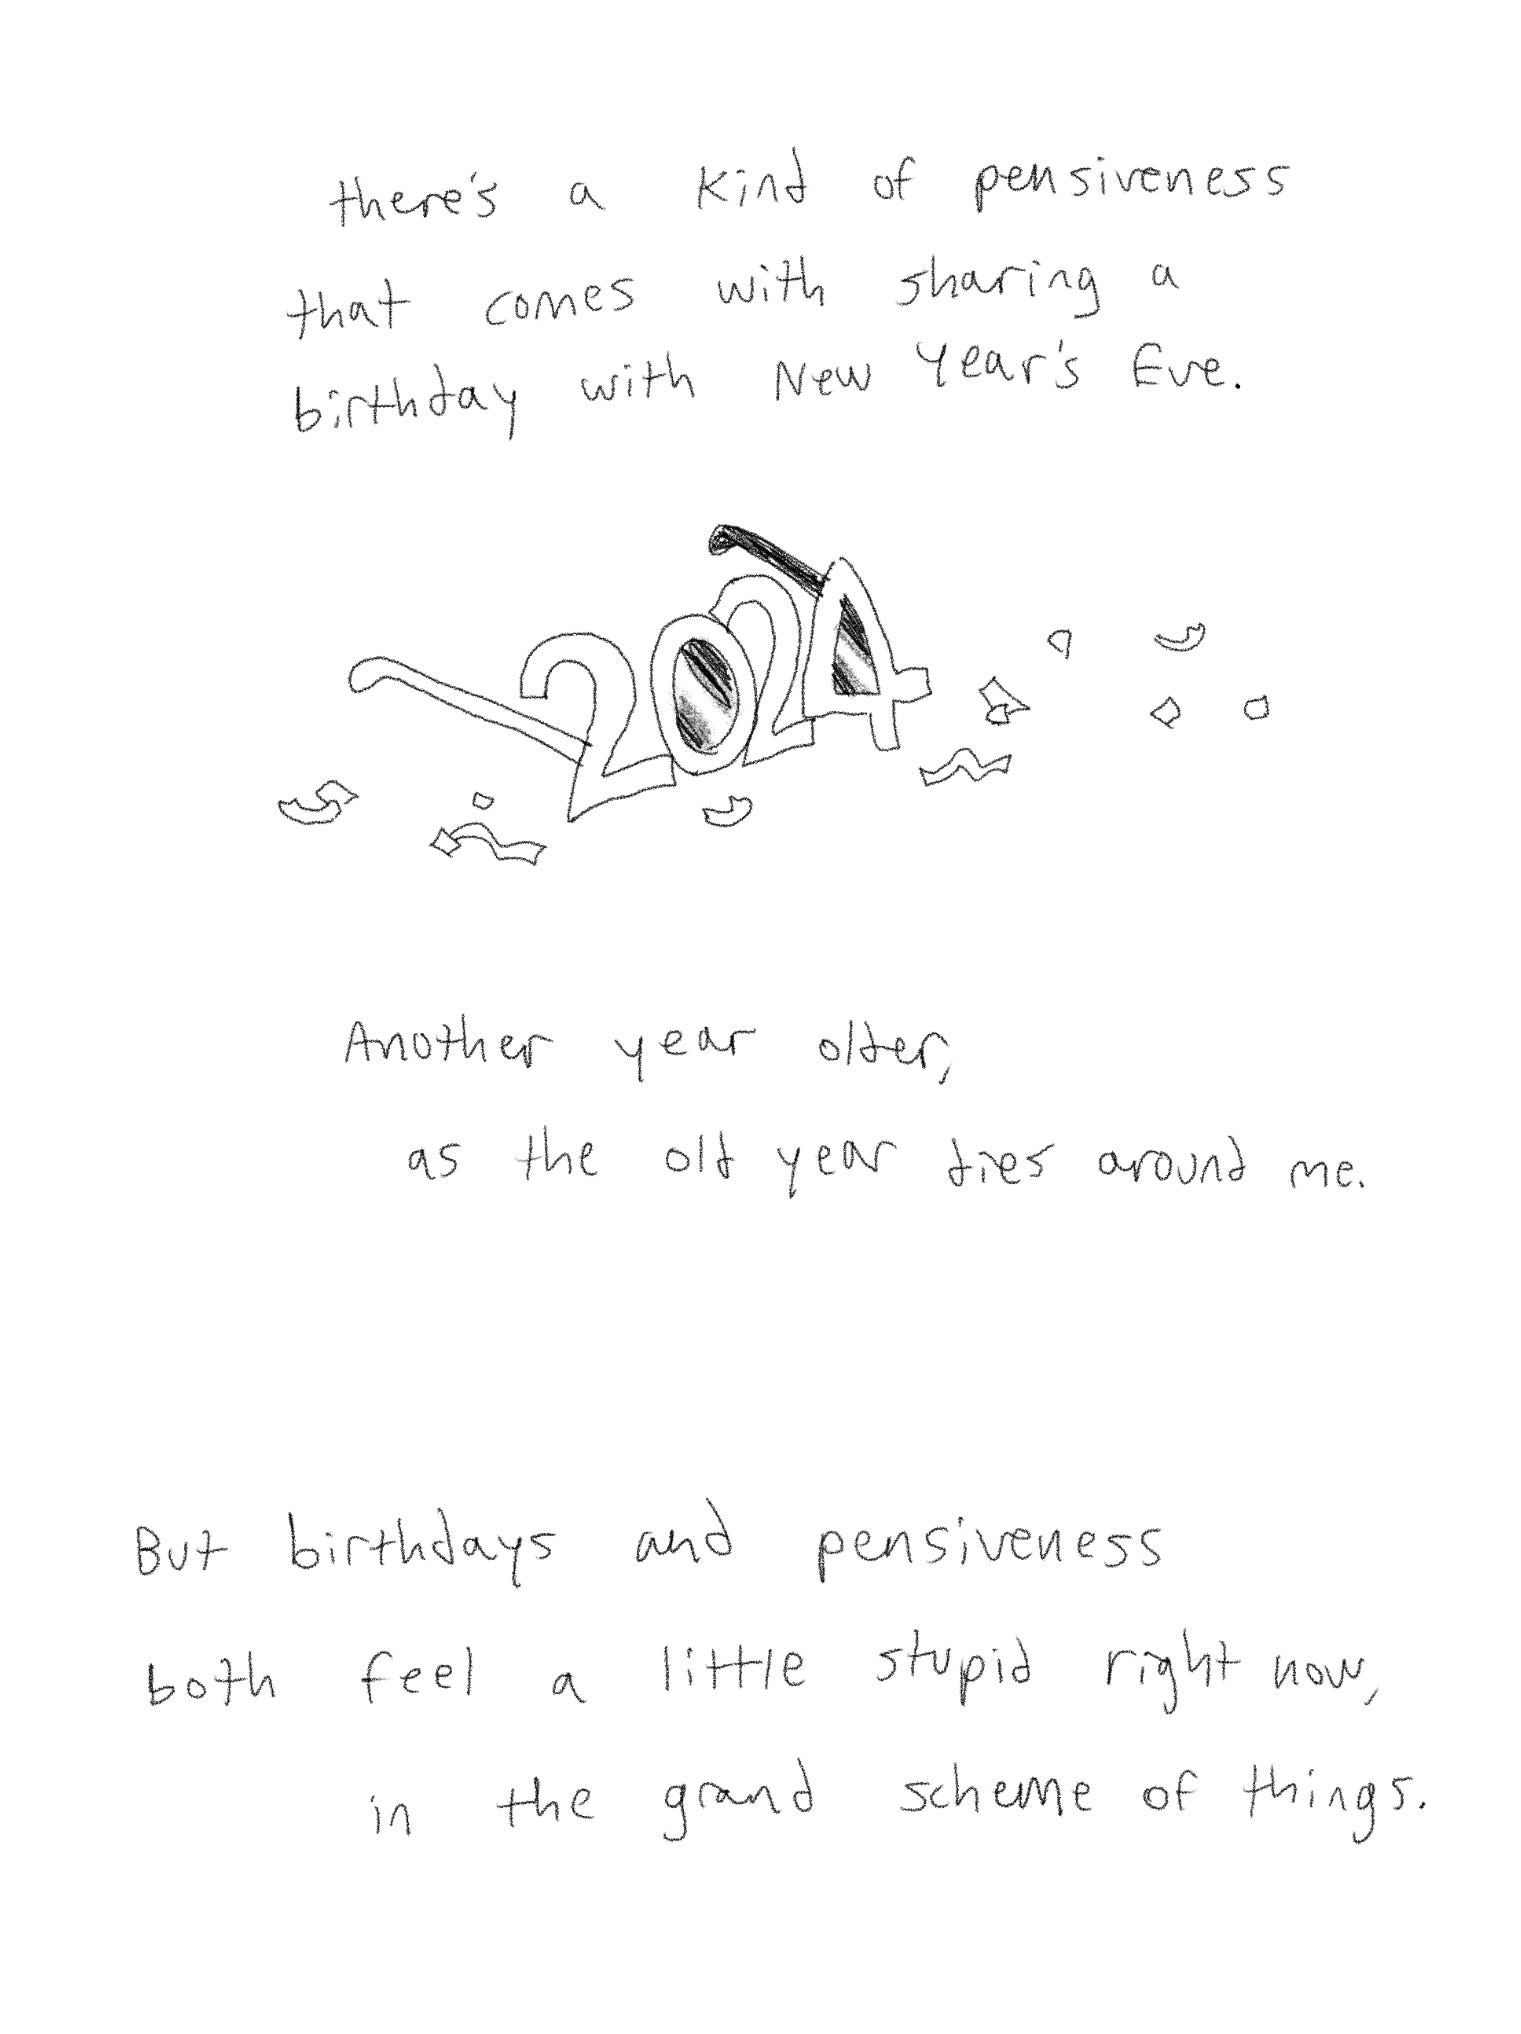 there's a kind of pensiveness
that comes with sharing a
birthday with New Year's Eve.
2024
Another year older,
as the old year dies around me.
But birthdays and pensiveness
both feel a little stupid right now,
in the grand scheme of things.